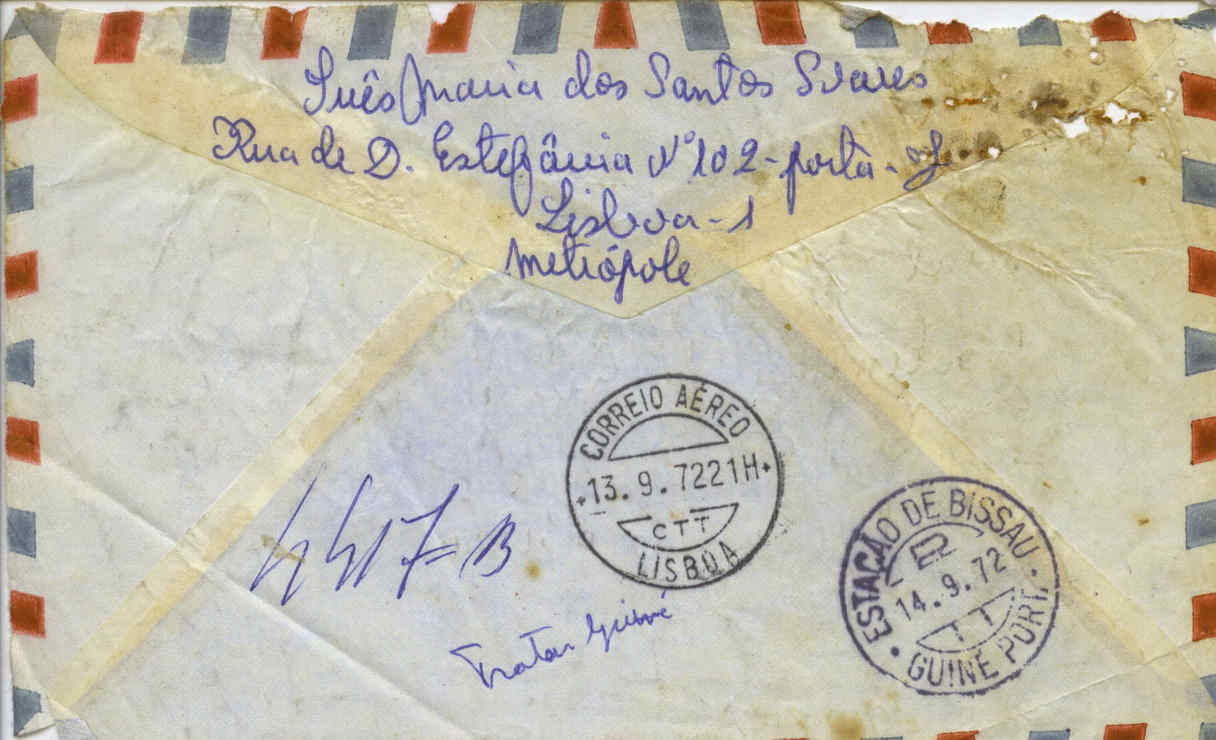 Inês Maria dos Santos Soares
Rua de D. Estefânia Nº 102 - porta -
Lisboa - 1
Metrópole
CORREIO AÉREO
13.9.7221H
CTT
LISBOA
ESTAÇÃO DE BISSAU
14.9.72
GUINÉ PORT.
4417 - B
Tratar Guiné